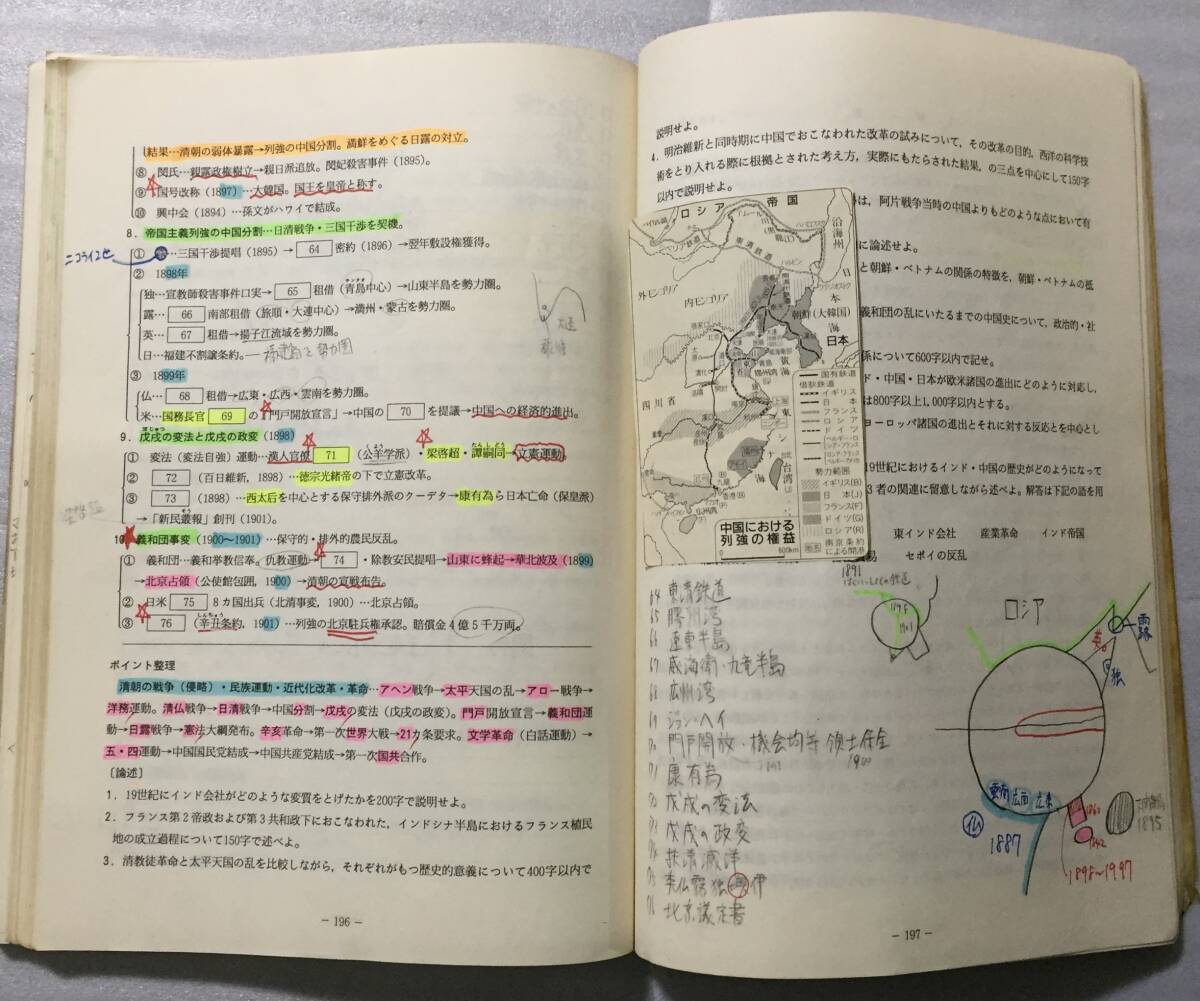 結果…清朝の弱体暴露→列強の中国分割。満鮮をめぐる日露の対立。
⑧ 閔氏…親露政権樹立→親日派追放。閔妃殺害事件（1895）。
⑨ 国号改称（1897）…大韓国。国王を皇帝と称す。
⑩ 興中会（1894）…孫文がハワイで結成。
8．帝国主義列強の中国分割…日清戦争・三国干渉を契機。
ニコライ2世
① 露…三国干渉提唱（1895）→ 64 密約（1896）→翌年敷設権獲得。
② 1898年
独…宣教師殺害事件口実→ 65 租借（青島中心）→山東半島を勢力圏。
露… 66 南部租借（旅順・大連中心）→満州・蒙古を勢力圏。
英… 67 租借→揚子江流域を勢力圏。
日…福建不割譲条約。
③ 1899年
仏… 68 租借→広東・広西・雲南を勢力圏。
米…国務長官 69 の「門戸開放宣言」→中国の 70 を提議→中国への経済的進出。
9．戊戌の変法と戊戌の政変（1898）
① 変法（変法自強）運動…漢人官僚 71 （公羊学派）・梁啓超・譚嗣同→立憲運動。
② 72 （百日維新，1898）…徳宗光緒帝の下で立憲改革。
③ 73 （1898）…西太后を中心とする保守排外派のクーデタ→康有為ら日本亡命（保皇派）
→「新民叢報」創刊（1901）。
10．義和団事変（1900～1901）…保守的・排外的農民反乱。
① 義和団…義和拳教信奉。仇教運動→ 74 ・除教安民提唱→山東に蜂起→華北波及（1899）
→北京占領（公使館包囲，1900）→清朝の宣戦布告。
② 日米 75 8カ国出兵（北清事変，1900）…北京占領。
③ 76 （辛丑条約，1901）…列強の北京駐兵権承認。賠償金4億5千万両。
ポイント整理
清朝の戦争（侵略）・民族運動・近代化改革・革命…アヘン戦争→太平天国の乱→アロー戦争→
洋務運動。清仏戦争→日清戦争→中国分割→戊戌の変法（戊戌の政変）。門戸開放宣言→義和団運
動→日露戦争→憲法大綱発布。辛亥革命→第一次世界大戦→21カ条要求。文学革命（白話運動）→
五・四運動→中国国民党結成→中国共産党結成→第一次国共合作。
〔論述〕
1．19世紀にインド会社がどのような変質をとげたかを200字で説明せよ。
2．フランス第2帝政および第3共和政下におこなわれた，インドシナ半島におけるフランス植民
地の成立過程について150字で述べよ。
3．清教徒革命と太平天国の乱を比較しながら，それぞれがもつ歴史的意義について400字以内で
－196－
説明せよ。
4．明治維新と同時期に中国でおこなわれた改革の試みについて，その改革の目的，西洋の科学技
術をとり入れる際に根拠とされた考え方，実際にもたらされた結果，の三点を中心にして150字
以内で説明せよ。
は，阿片戦争当時の中国よりもどのような点において有
に論述せよ。
と朝鮮・ベトナムの関係の特徴を，朝鮮・ベトナムの抵
義和団の乱にいたるまでの中国史について，政治的・社
係について600字以内で記せ。
ド・中国・日本が欧米諸国の進出にどのように対応し，
は800字以上1,000字以内とする。
ヨーロッパ諸国の進出とそれに対する反応とを中心とし
19世紀におけるインド・中国の歴史がどのようになって
3者の関連に留意しながら述べよ。解答は下記の語を用
東インド会社 産業革命 インド帝国
易 セポイの反乱
ロシア帝国
沿海州
外モンゴリア
内モンゴリア
東清鉄道
ハルビン
朝鮮(大韓国)
日本
黄海
四川省
台湾
国有鉄道
借款鉄道
イギリス
日本
フランス
ロシア
ドイツ
勢力範囲
イギリス(B)
日本(J)
フランス(F)
ドイツ(G)
ロシア(R)
南京条約による開港
中国における列強の権益
600km
64 東清鉄道
65 膠州湾
66 遼東半島
67 威海衛・九竜半島
68 広州湾
69 ジョン・ヘイ
70 門戸開放・機会均等 領土保全
1900
71 康有為
72 戊戌の変法
73 戊戌の政変
74 扶清滅洋
75 英仏露独墺伊
76 北京議定書
1891
ロシア
露
英
独
雲南 広西 広東
仏
1887
1860
1842
1895
1898～1997
－197－